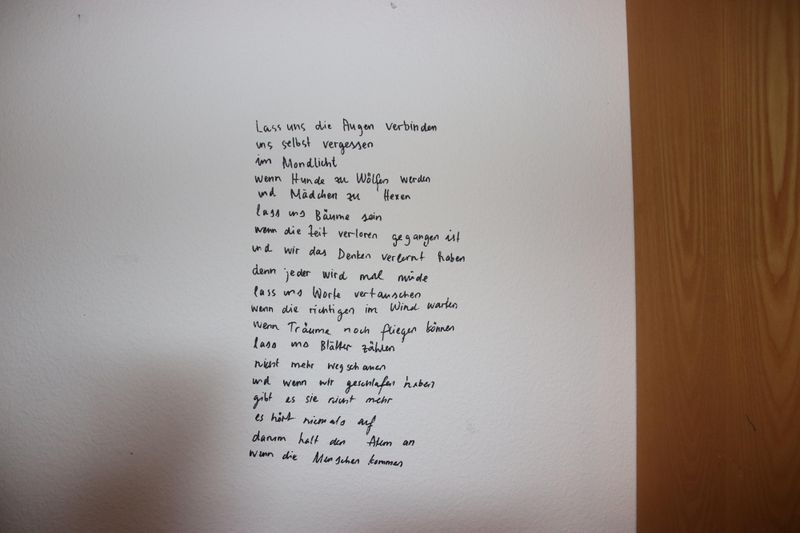 Lass uns die Augen verbinden
uns selbst vergessen
im Mondlicht
wenn Hunde zu Wölfen werden
und Mädchen zu Hexen
lass uns Bäume sein
wenn die Zeit verloren gegangen ist
und wir das Denken verlernt haben
denn jeder wird mal müde
lass uns Worte vertauschen
wenn die richtigen im Wind warten
wenn Träume noch fliegen können
lass uns Blätter zählen
nicht mehr wegschauen
und wenn wir geschlafen haben
gibt es sie nicht mehr
es hört niemals auf
darum halt den Atem an
wenn die Menschen kommen